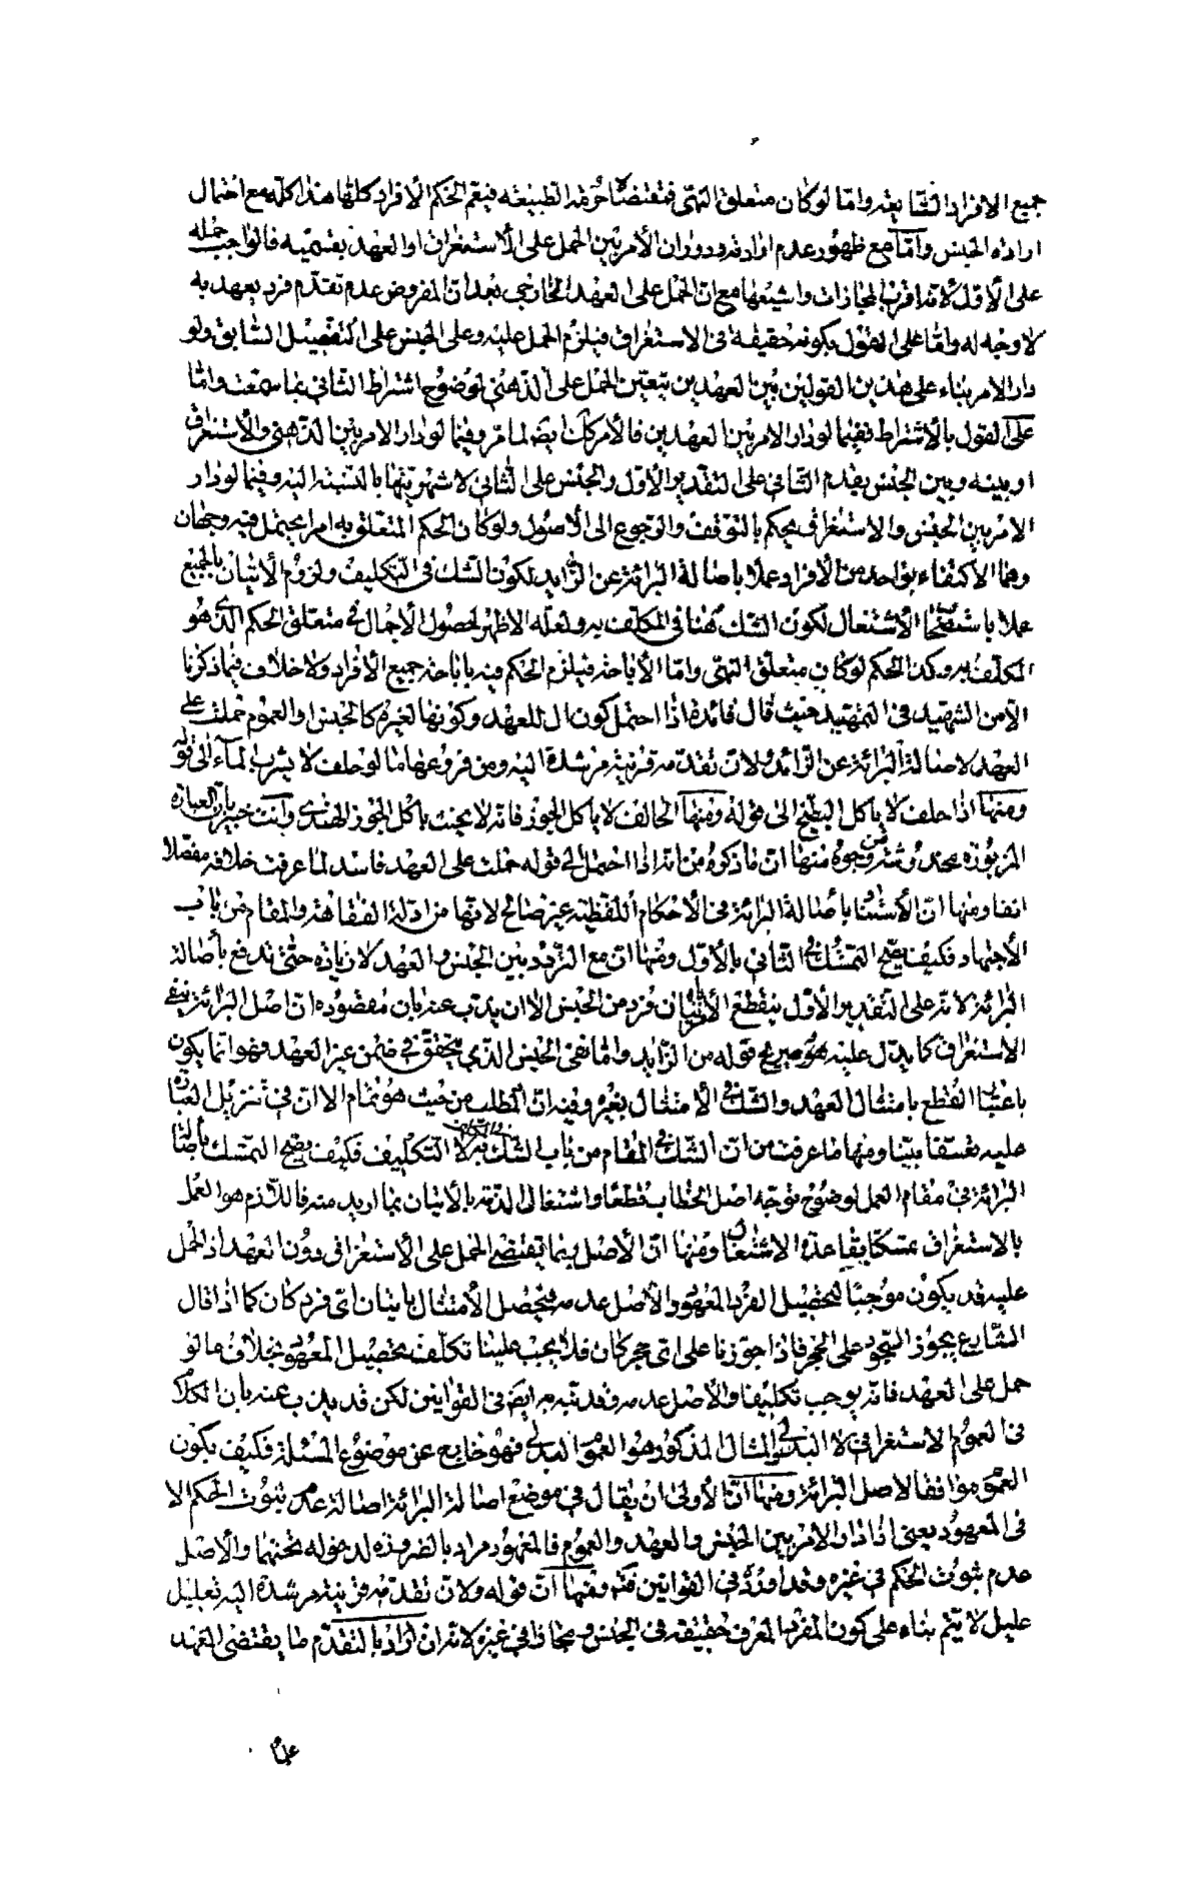 جميع الافراد الشايعة واما لو كان متعلق النهى فمقتضاه حرمة الطبيعة فيعم الحكم الافراد كلها هذا كله مع احتمال
ارادة الجنس واما مع ظهور عدم ارادته ودوران الأمر بين الحمل على الاستغراق او العهد بقسميه فالواجب حمله
على الأول لأنه اقرب المجازات واشيعها مع ان الحمل على العهد الخارجى بعد ان المفروض عدم تقدم فرد يعهد به
لا وجه له واما على القول بكونه حقيقة فى الاستغراق فيلزم الحمل عليه وعلى الجنس على التفصيل السابق ولو
دار الامر بناء على هذين القولين بين العهدين يتعين الحمل على الذهنى لوضوح اشتراط الثانى بما سمعت واما
على القول بالاشتراط ففيما لو دار الامر بين العهدين فالأمر كك ايضا لما مر وفيما لو دار الامر بين الذهنى والأستغراق
او بينه وبين الجنس يقدم الثانى على التقدير الأول والجنس على الثانى لاشهريتها بالنسبة اليه وفيما لو دار
الامر بين الجنس والاستغراق يحكم بالتوقف والرجوع الى الاصول ولو كان الحكم المتعلق به امرا يحتمل فيه وجهان
وهما الاكتفاء بواحد من الأفراد عملا باصالة البرائة عن الزايد لكون الشك فى التكليف ولزوم الأتيان بالجميع
عملا باستصحاب الأشتغال لكون الشك هنا فى المكلف به ولعله الاظهر لحصول الاجمال فى متعلق الحكم الذى هو
المكلف به وكذا الحكم لو كان متعلق النهى واما الأباحة فيلزم الحكم فيه باباحة جميع الأفراد ولا خلاف فيما ذكرنا
الا من الشهيد فى التمهيد حيث قال فائدة اذا احتمل كون ال للعهد وكونها لغيره كالجنس او العموم حملت على
العهد لاصالة البرائة عن الزائد ولان تقدمه قرينة مرشدة اليه ومن فروعها ما لو حلف لا يشرب الماء الى قوله
ومنها اذا حلف لا ياكل البطيخ الى قوله ومنها الحالف لا ياكل الجوز فانه لا يحنث باكل الجوز الهندى وانت خبير بان العبارة
المزبورة مخدوشة من وجوه منها ان ما ذكره من انه اذا احتمل الى قوله حملت على العهد فاسد لما عرفت خلافه مفصلا
انفا ومنها ان الأستناد باصالة البرائة فى الأحكام اللفظية غير صالح لانها من ادلة الفقاهة والمقام من باب
الأجتهاد فكيف يصح التمسك فى الثانى بالأول ومنها ان مع التردد بين الجنس والعهد لا زيادة حتى تدفع باصالة
البرائة لانه على التقدير الأول ينقطع الأتيان بفرد من الجنس الا ان يذب عنه بان مقصوده ان اصل البرائة ينفى
الاستغراق كما يدل عليه هو صريح قوله من الزايد واما نفى الجنس الذى يتحقق فى ضمن غير العهد فهو انما يكون
باعتبار القطع بامتثال العهد والشك فى الأمتثال بغيره وفيه ان المطلب من حيث هو تمام الا ان فى تنزيل العبارة
عليه تعسفا بينا ومنها ما عرفت من ان الشك فى المقام من باب الشك فى المكلف به لا التكليف فكيف يصح التمسك باصالة
البرائة فى مقام العمل لوضوح توجه اصل الخطاب قطعا واشتغال الذمة بالأتيان بما اريد منه فاللازم هو العمل
بالاستغراق تمسكا بقاعدة الاشتغال ومنها ان الأصل ربما يقتضى الحمل على الأستغراق دون العهد اذ الحمل
عليه قد يكون موجبا لتحصيل الفرد المعهود والأصل عدمه فيحصل الأمتثال باتيان اى فرد كان كما اذا قال
الشارع يجوز السجود على الحجر فاذا جوزنا على اى حجر كان فلا يجب علينا تكلف تحصيل المعهود بخلاف ما لو
حمل على العهد فانه يوجب تكليفا والأصل عدمه وقد تنبه به ايضا فى القوانين لكن قد يذب عنه بان الكلام
فى العموم الاستغراقى لا البدلى والمثال المذكور هو العموم البدلى فهو خارج عن موضوع المسئلة فكيف يكون
العموم موافقا لاصل البرائة ومنها ان الأولى ان يقال فى موضع اصالة البرائة اصالة عدم ثبوت الحكم الا
فى المعهود يعنى اذا دار الأمر بين الجنس والعهد والعموم فالمعهود مراد بالضرورة لدخوله تحتهما والأصل
عدم ثبوت الحكم فى غيره وقد أورد فى القوانين فتم ومنها ان قوله ولان تقدمه قرينة مرشدة اليه تعليل
عليل لا يتم بناء على كون المفرد المعرف حقيقة فى الجنس ومجازا فى غيره لانه ان اراد بالتقدم ما يقتضى العهد